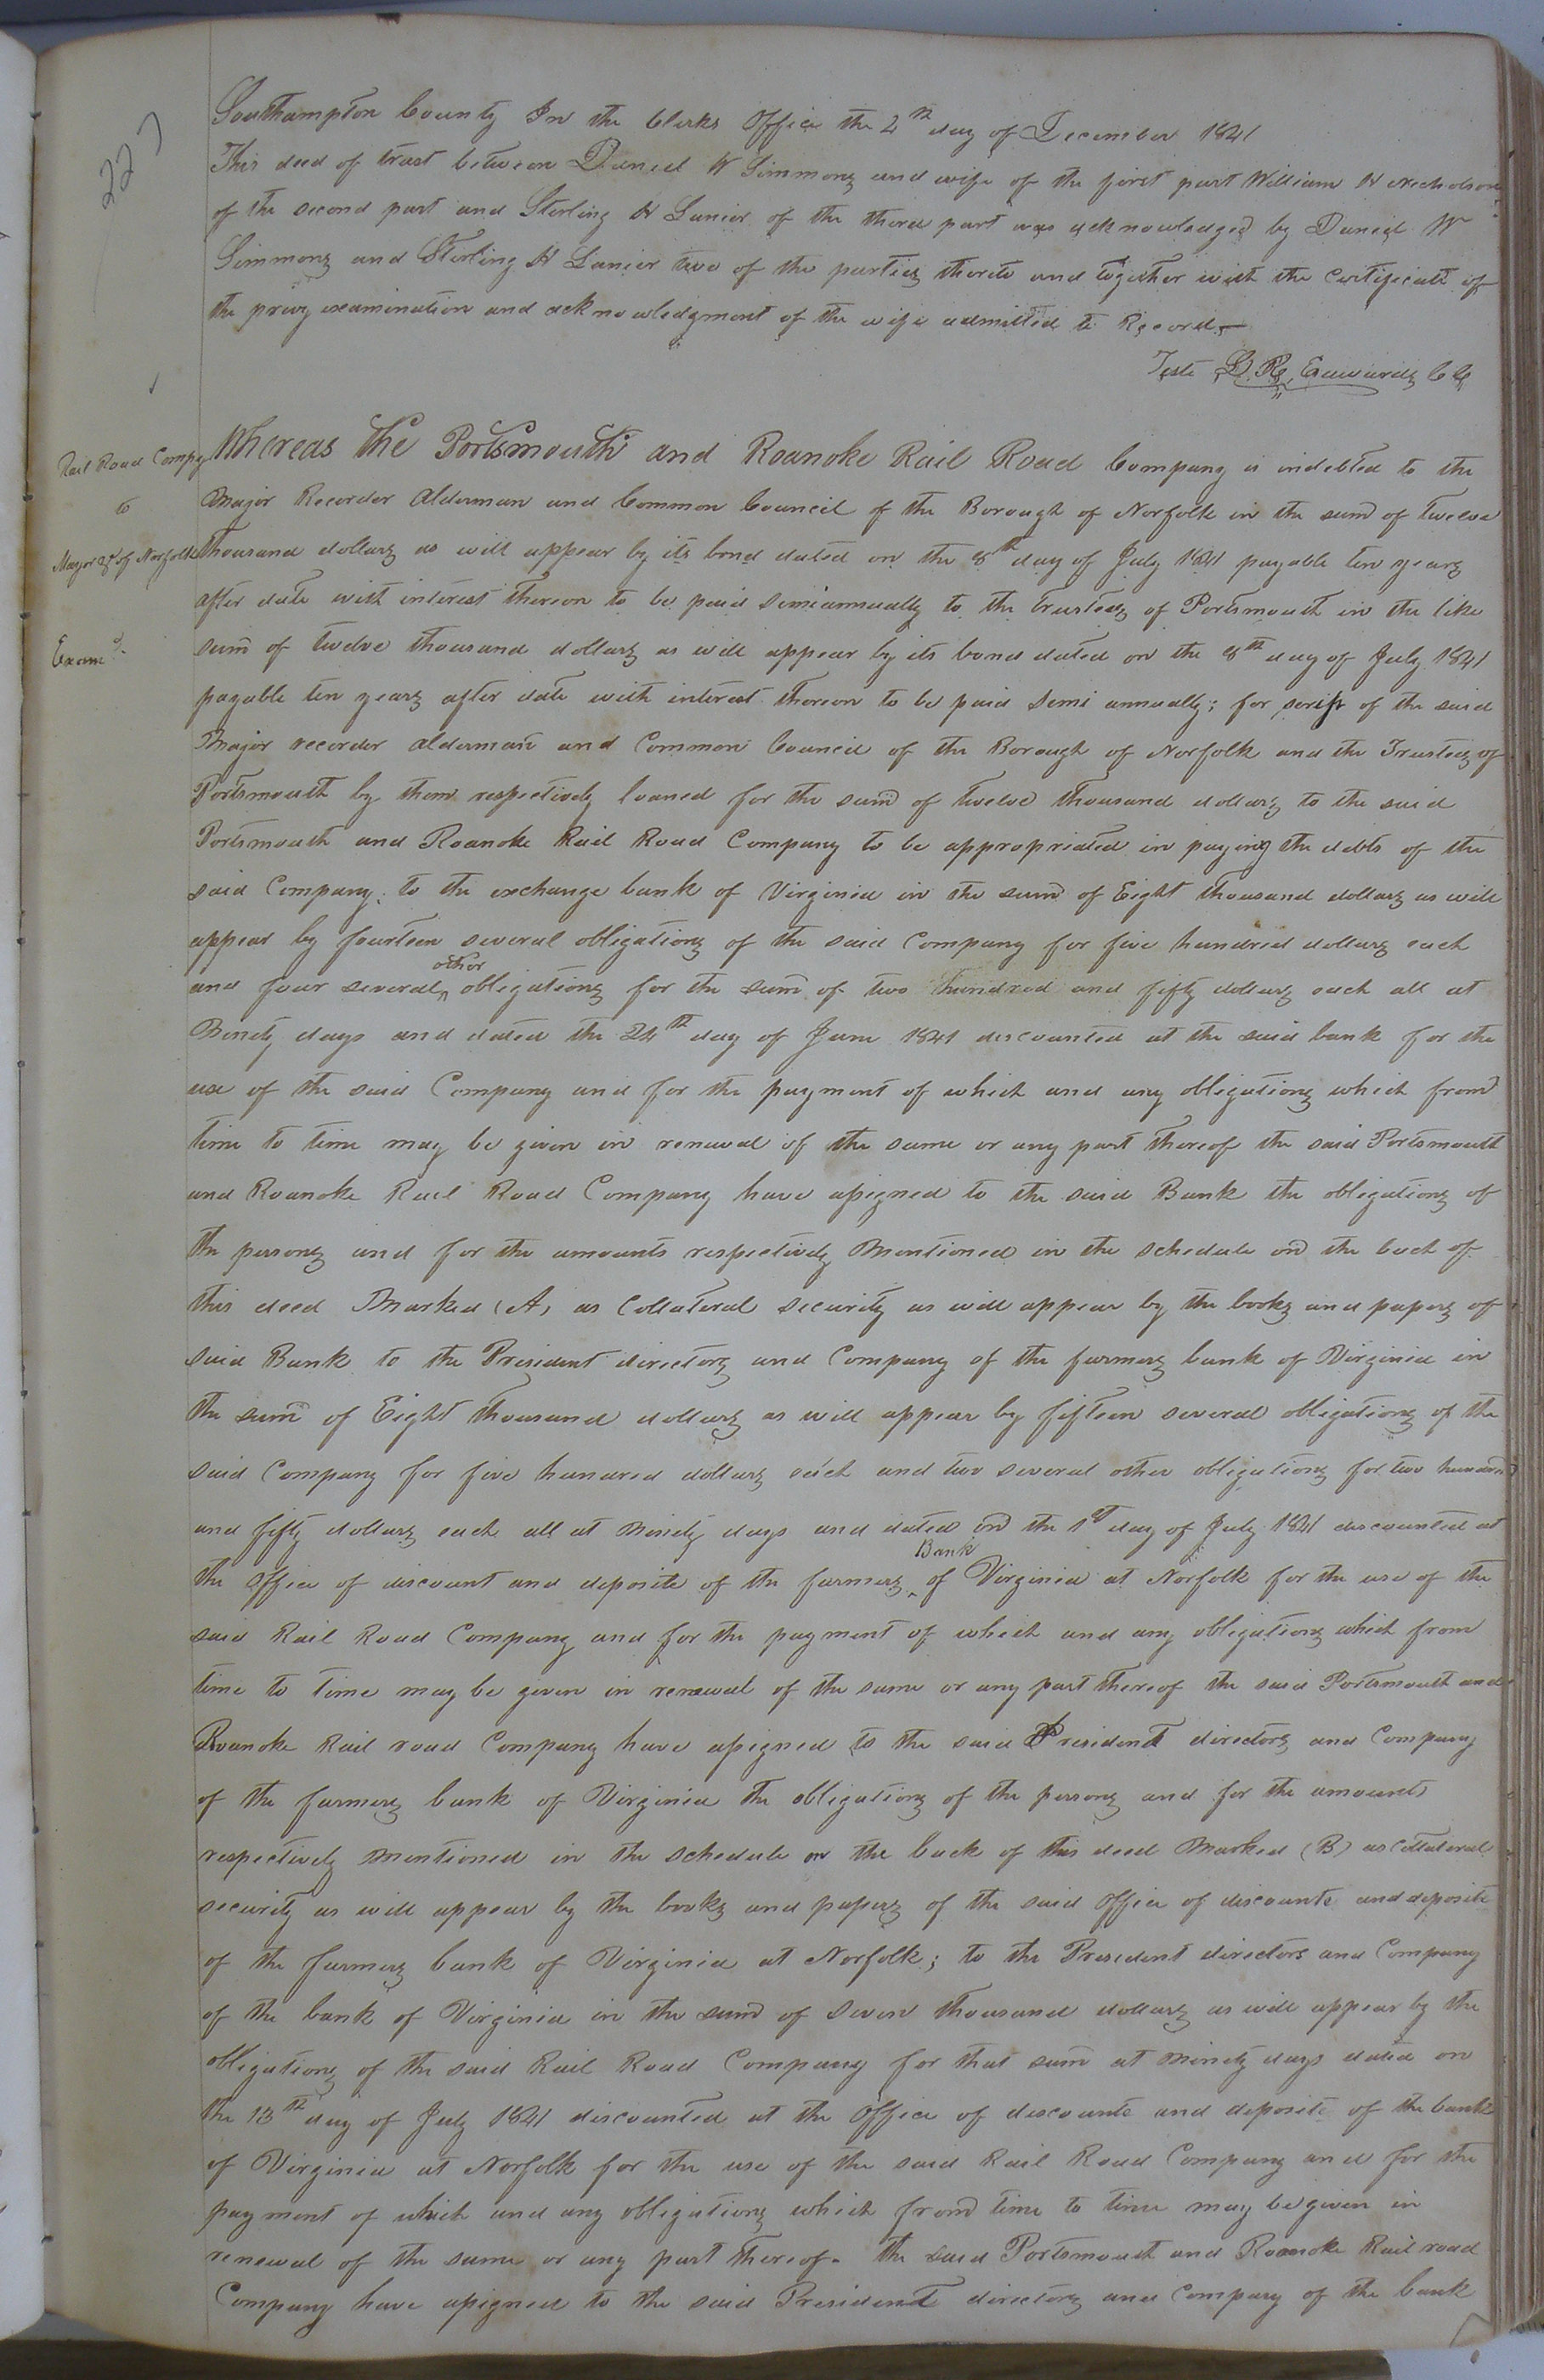 227
Southampton County In the Clerks Office the 2nd day of December 1841
This deed of trust between Daniel W Simmons and wife of the first part William H Nicholson
of the second part and Sterling H Lanier of the third part was acknowledged by Daniel W
Simmons and Sterling H Lanier two of the parties thereto and together with the Certificate of
the privy examination and acknowledgment of the wife admitted to Record
Teste L. R. Edwards CC
Rail Road Compy
to
Mayor &c of Norfolk
Examd.
Whereas the Portsmouth and Roanoke Rail Road Company is indebted to the
Major Recorder Alderman and Common Council of the Borough of Norfolk in the sum of twelve
thousand dollars as will appear by its bond dated on the 8th day of July 1841 payable ten years
after date with interest thereon to be paid semiannually to the trustees of Portsmouth in the like
sum of twelve thousand dollars as will appear by its bond dated on the 8th day of July 1841
payable ten years after date with interest thereon to be paid semi annually; for scrip of the said
Major recorder alderman and Common Council of the Borough of Norfolk and the Trustees of
Portsmouth by them respectively loaned for the sum of twelve thousand dollars to the said
Portsmouth and Roanoke Rail Road Company to be appropriated in paying the debts of the
said Company. to the exchange bank of Virginia in the sum of Eight thousand dollars as will
appear by fourteen several obligations of the said Company for five hundred dollars each
and four several other obligations for the sum of two hundred and fifty dollars each all at
Ninety days and dated the 24th day of June 1841 discounted at the said bank for the
use of the said Company and for the payment of which and any obligations which from
time to time may be given in renewal of the same or any part thereof the said Portsmouth
and Roanoke Rail Road Company have assigned to the said Bank the obligations of
the persons and for the amounts respectively Mentioned in the schedule on the back of
this deed Marked (A) as Collateral security as will appear by the books and papers of
said Bank to the President directors and Company of the farmers bank of Virginia in
the sum of Eight thousand dollars as will appear by fifteen several obligations of the
said Company for five hundred dollars each and two several other obligations for two hundred
and fifty dollars each all at Ninety days and dated on the 1st day of July 1841 discounted at
the office of discount and deposite of the farmers Bank of Virginia at Norfolk for the use of the
said Rail Road Company and for the payment of which and any obligations which from
time to time may be given in renewal of the same or any part thereof the said Portsmouth and
Roanoke Rail road Company have assigned to the said President directors and Company
of the farmers bank of Virginia the obligations of the persons and for the amounts
respectively Mentioned in the schedule on the back of this deed Marked (B) as Collateral
security as will appear by the books and papers of the said office of discounts and deposite
of the farmers bank of Virginia at Norfolk; to the President directors and Company
of the bank of Virginia in the sum of seven thousand dollars as will appear by the
obligations of the said Rail Road Company for that sum at Ninety days dated on
the 13th day of July 1841 discounted at the office of discounts and deposite of the bank
of Virginia at Norfolk for the use of the said Rail Road Company and for the
payment of which and any obligations which from time to time may be given in
renewal of the same or any part thereof. the said Portsmouth and Roanoke Rail road
Company have assigned to the said President directors and Company of the bank